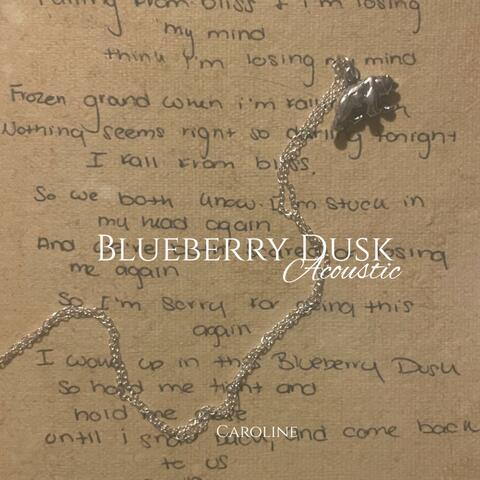 from bliss & i'm losing
my mind
think i'm losing my mind
Frozen grand when i'm
Nothing seems right so darling tonight
I fall from bliss.
So we both know I'm stuck in
my head again
BLUEBERRY DUSK
And losing
Acoustic
me again
So I'm sorry for being this
again
I up in this Blueberry Dusk
So hold me tight and
hold me
CAROLINE
until i and come back
to us